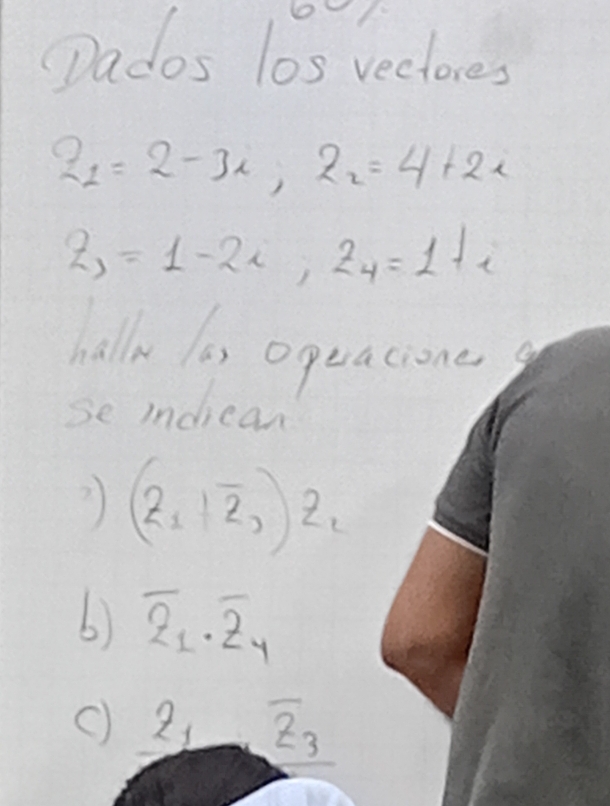 60%
Dados los vectores
Z₁ = 2 - 3i ; Z₂ = 4 + 2i
Z₃ = 1 - 2i ; Z₄ = 1 + i
hallar las operaciones
se indican
) (Z₁ + Z̅₃) Z₂
b) Z̅₁ . Z̅₄
c) Z₁ Z̅₃